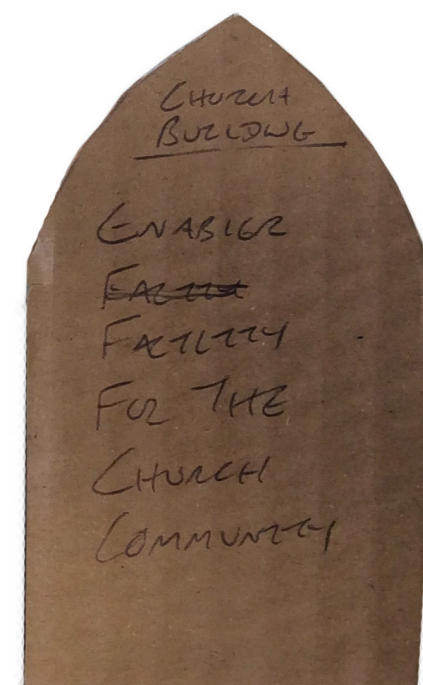 CHURCH
BUILDING
ENABLER
FACILITY
FOR THE
CHURCH
COMMUNITY